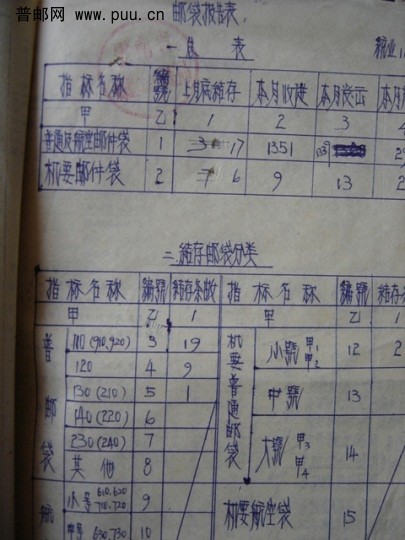 普邮网
www.puu.cn
邮袋报告表
一 总 表
指标名称 編號 上月底結存 本月收進 本月发出
甲 乙 1 2 3 4
普通及航空邮件袋 1 17 1351
机要邮件袋 2 6 9 13 2
二、結存邮袋分类
指标名称 編號 結存条数 指标名称 編號 結
甲 乙 1 甲 乙 1
普邮袋 110 (910,920) 3 19 机要普通邮袋 小號 甲1 甲2 12 2
120 4 9
130 (210) 5 1 中號 13
140 (220) 6
230 (240) 7 大號 甲3 甲4 14
其他 8
航 小号 610,620 710,720 9 机要航空袋 15
中号 630,730 10